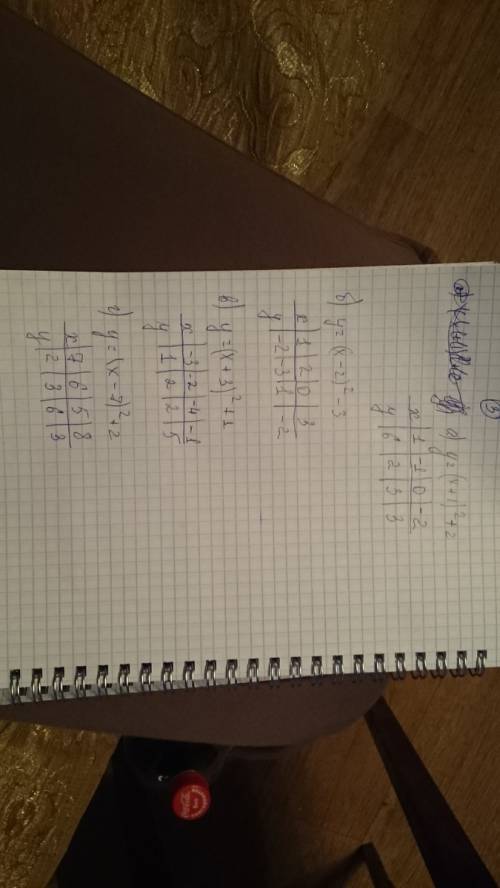 ③
а) y=(x+1)²+2
x | 1 | -1 | 0 | -2
y | 6 | 2 | 3 | 3
б) y=(x-2)²-3
x | 1 | 2 | 0 | 3
y | -2 | -3 | 1 | -2
в) y=(x+3)²+1
x | -3 | -2 | -4 | -1
y | 1 | 2 | 2 | 5
г) y=(x-7)²+2
x | 7 | 6 | 5 | 8
y | 2 | 3 | 6 | 3